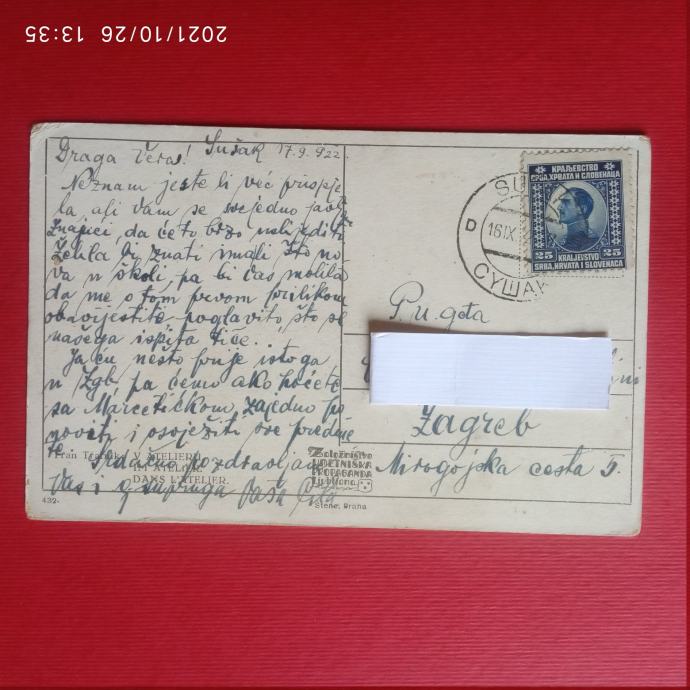 2021/10/26 13:35
Draga Vera! Sušak 17.9.922.
Neznam jeste li već prispje
la, ali Vam se svejedno jav
znajući, da ćete brzo uslijediti
Želila bi znati imali što no
va u školi, pa bi Vas molila
da me o tom prvom prilikom
obavijestite, poglavito što se
našega ispita tiče.
Ja ću nešto prije istoga
u Zgb, pa ćemo ako hoćete
sa Marcetičkom zajedno po
noviti i osvježiti sve predme
te.
Srdačno pozdravlja
Vas i g. supruga Vaša
V ATELIERU
DANS L'ATELIER.
432.
Založništvo
UMETNIŠKA
PROPAGANDA
Ljubljana
Stenc, Praha
КРАЉЕВСТВО
СРБА, ХРВАТА И СЛОВЕНАЦА
25 25
KRALJEVSTVO
SRBA, HRVATA I SLOVENACA
SU
D 16IX
СУШАК
P. n. gđa
Zagreb
Mirogojska cesta 5.